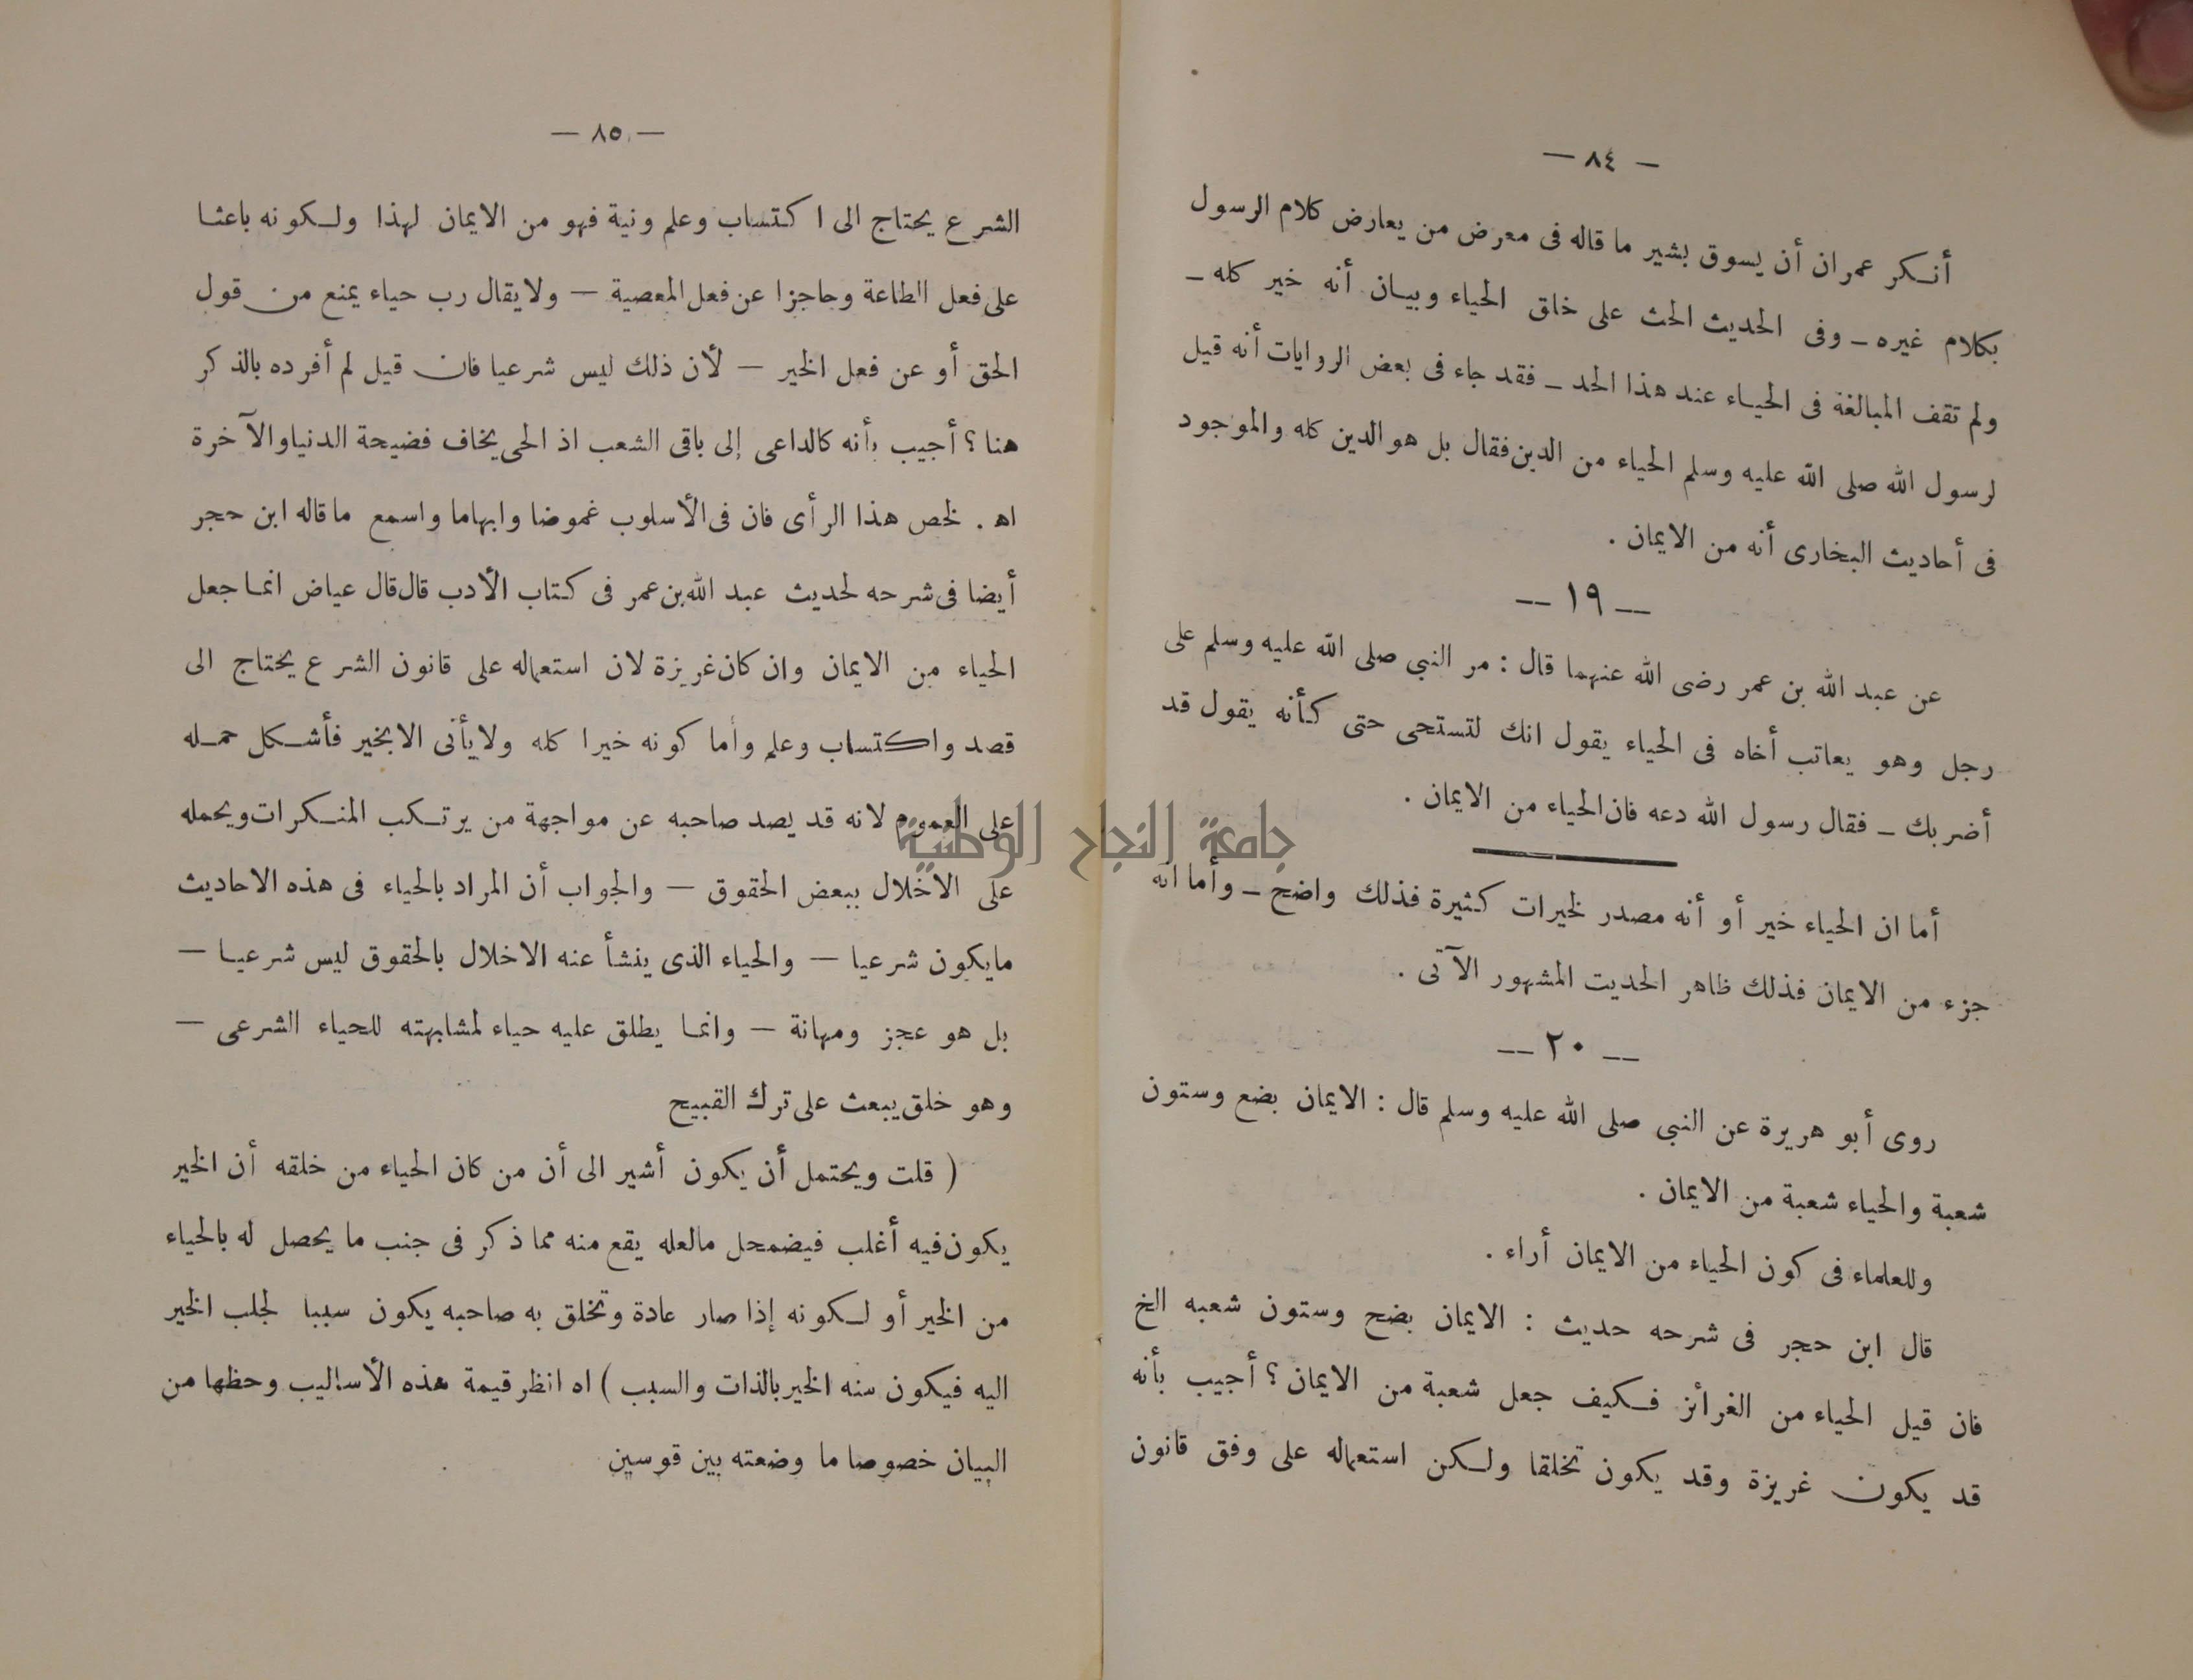 — ٨٤ —
أنكر عمران أن يسوق بشير ما قاله فى معرض من يعارض كلام الرسول
بكلام غيره — وفى الحديث الحث على خلق الحياء وبيان أنه خير كله —
ولم تقف المبالغة فى الحياء عند هذا الحد — فقد جاء فى بعض الروايات أنه قيل
لرسول الله صلى الله عليه وسلم الحياء من الدين فقال بل هو الدين كله والموجود
فى أحاديث البخارى أنه من الايمان .
— ١٩ —
عن عبد الله بن عمر رضى الله عنهما قال : مر النبى صلى الله عليه وسلم على
رجل وهو يعاتب أخاه فى الحياء يقول انك لتستحى حتى كأنه يقول قد
أضر بك — فقال رسول الله دعه فان الحياء من الايمان .
أما ان الحياء خير أو أنه مصدر لخيرات كثيرة فذلك واضح — وأما انه
جزء من الايمان فذلك ظاهر الحديت المشهور الآتى .
— ٢٠ —
روى أبو هريرة عن النبى صلى الله عليه وسلم قال : الايمان بضع وستون
شعبة والحياء شعبة من الايمان .
وللعلماء فى كون الحياء من الايمان أراء .
قال ابن حجر فى شرحه حديث : الايمان بضح وستون شعبه الخ
فان قيل الحياء من الغرائز فكيف جعل شعبة من الايمان ؟ أجيب بأنه
قد يكون غريزة وقد يكون تخلقا ولكن استعماله على وفق قانون
— ٨٥ —
الشرع يحتاج الى اكتساب وعلم ونية فهو من الايمان لهذا ولكونه باعثا
على فعل الطاعة وحاجزا عن فعل المعصية — ولا يقال رب حياء يمنع من قول
الحق أو عن فعل الخير — لأن ذلك ليس شرعيا فان قيل لم أفرده بالذكر
هنا ؟ أجيب بأنه كالداعى إلى باقى الشعب اذ الحى يخاف فضيحة الدنيا والآخرة
اه . لخص هذا الرأى فان فى الأسلوب غموضا وابهاما واسمع ماقاله ابن حجر
أيضا فى شرحه لحديث عبد الله بن عمر فى كتاب الأدب قال قال عياض انما جعل
الحياء من الايمان وان كان غريزة لان استعماله على قانون الشرع يحتاج الى
قصد واكتساب وعلم وأما كونه خيرا كله ولا يأتى الا بخير فأشكل حمله
على العموم لانه قد يصد صاحبه عن مواجهة من يرتكب المنكرات ويحمله
على الاخلال ببعض الحقوق — والجواب أن المراد بالحياء فى هذه الاحاديث
مايكون شرعيا — والحياء الذى ينشأ عنه الاخلال بالحقوق ليس شرعيا —
بل هو عجز ومهانة — وانما يطلق عليه حياء لمشابهته للحياء الشرعى —
وهو خلق يبعث على ترك القبيح
( قلت ويحتمل أن يكون أشير الى أن من كان الحياء من خلقه أن الخير
يكون فيه أغلب فيضمحل مالعله يقع منه مما ذكر فى جنب ما يحصل له بالحياء
من الخير أو لكونه إذا صار عادة وتخلق به صاحبه يكون سببا لجلب الخير
اليه فيكون منه الخير بالذات والسبب ) اه انظر قيمة هذه الأساليب وحظها من
البيان خصوصا ما وضعته بين قوسين
جامعة النجاح الوطنية